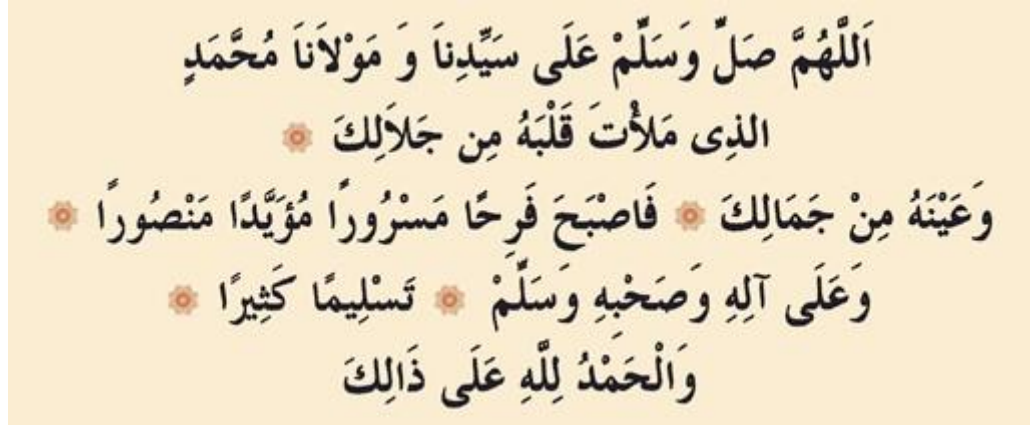 اَللَّهُمَّ صَلِّ وَسَلِّمْ عَلَى سَيِّدِنَا وَ مَوْلَانَا مُحَمَّدٍ
الذِى مَلَأْتَ قَلْبَهُ مِن جَلَالِكَ
وَعَيْنَهُ مِنْ جَمَالِكَ فَاصْبَحَ فَرِحًا مَسْرُورًا مُؤَيَّدًا مَنْصُورًا
وَعَلَى آلِهِ وَصَحْبِهِ وَسَلِّمْ تَسْلِيمًا كَثِيرًا
وَالْحَمْدُ لِلَّهِ عَلَى ذَالِكَ